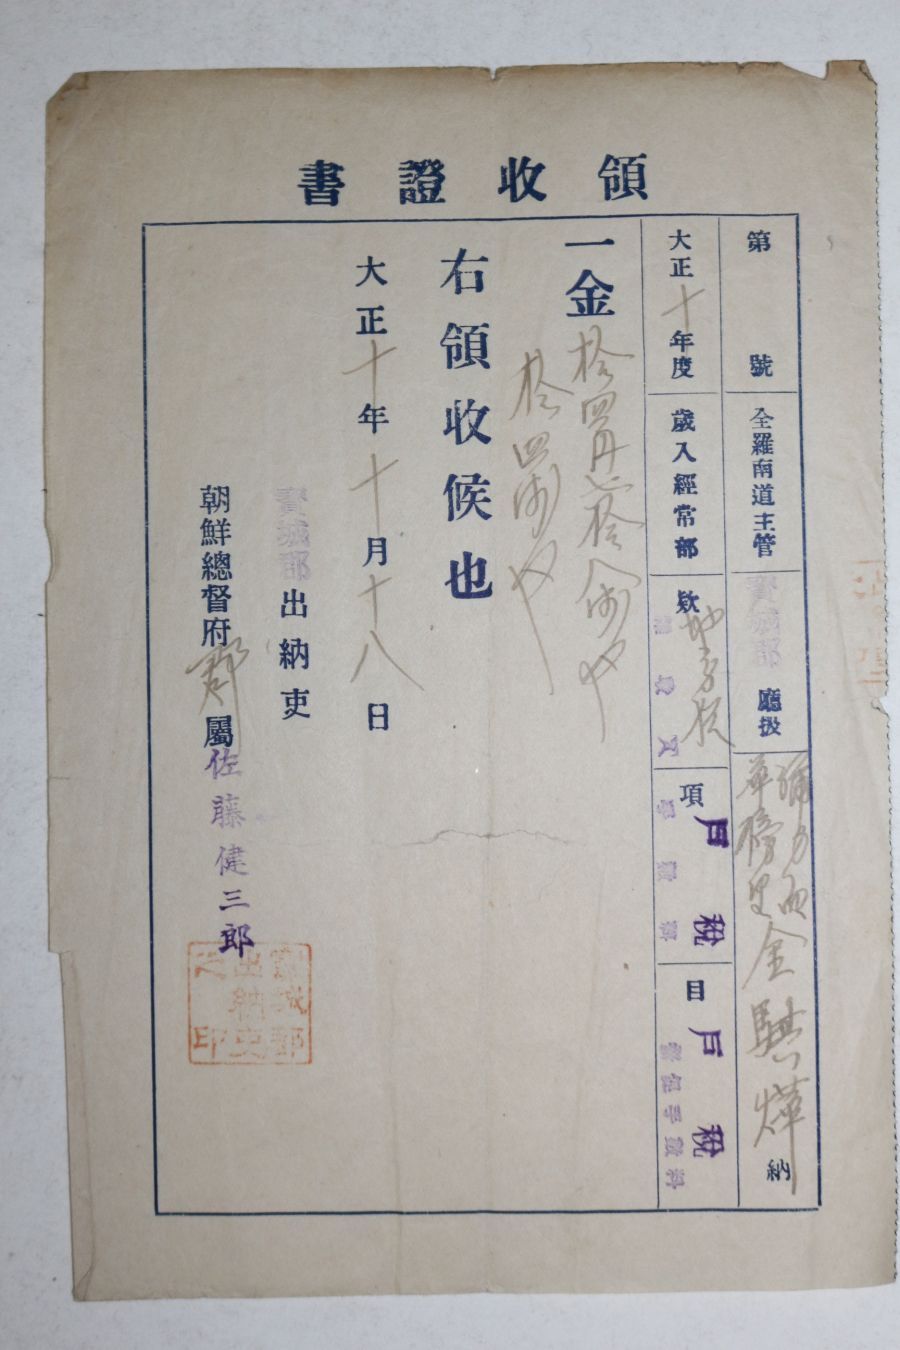 領收證書
第 號
全羅南道主管
寶城郡 廳扱
金 納
大正十年度
歲入經常部
款
項 戶稅
目 戶稅
手數料
一金拾四円
拾四
右領收候也
大正十年十月十八日
寶城郡出納吏
朝鮮總督府郡屬佐藤健三郎
寶城郡
出納吏
之印